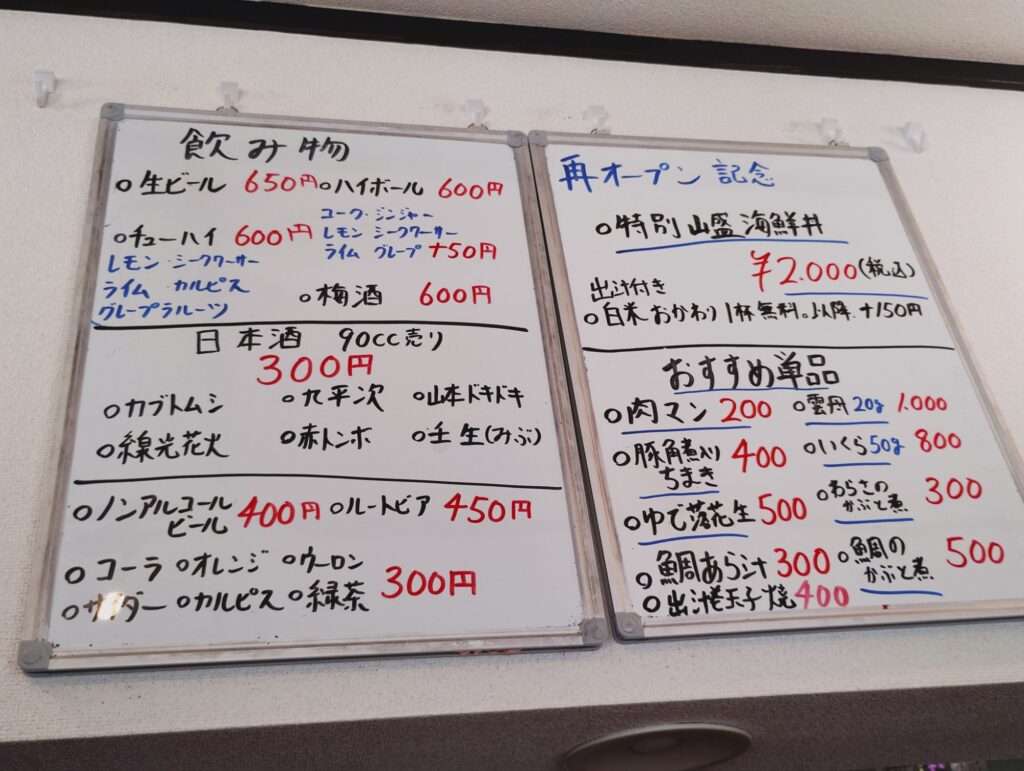 飲み物
○生ビール 650円 ○ハイボール 600円
コーク・ジンジャー
レモン シークワーサー
ライム グレープ +50円
○チューハイ 600円
レモン・シークワーサー
ライム カルピス
グレープフルーツ
○梅酒 600円
日本酒 90cc売り
300円
○カブトムシ ○九平次 ○山本ドキドキ
○線光花火 ○赤トンボ ○壬生(みぶ)
○ノンアルコール
ビール 400円 ○ルートビア 450円
○コーラ ○オレンジ ○ウーロン
○サイダー ○カルピス ○緑茶 300円
再オープン記念
○特別山盛海鮮丼
¥2.000(税込)
出汁付き
○白米おかわり1杯無料。以降+150円
おすすめ単品
○肉マン 200 ○雲丹20g 1.000
○豚角煮入り
ちまき 400 ○いくら50g 800
○ゆで落花生 500 ○わらさの
かぶと煮 300
○鯛あら汁 300 ○鯛の
かぶと煮 500
○出汁巻玉子焼 400